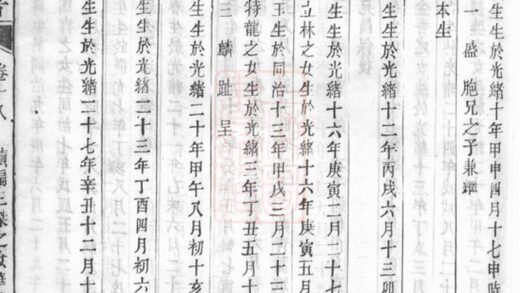 生生於光緒十年甲申四月十七申時
一盛胞兄之子兼繼
本生
生生於光緒十二年丙戌六月十三卯
生生於光緒十六年庚寅二月二十七
立林之女生於光緒十六年庚寅五月
王生於同治十三年甲戌三月二十三
特龍之女生於光緒三年丁丑五月十
三麟趾呈
生生於光緒二十年甲午八月初十亥
生生於光緒二十三年丁酉四月初六
生生於光緒二十七年辛丑十二月十
卷十八